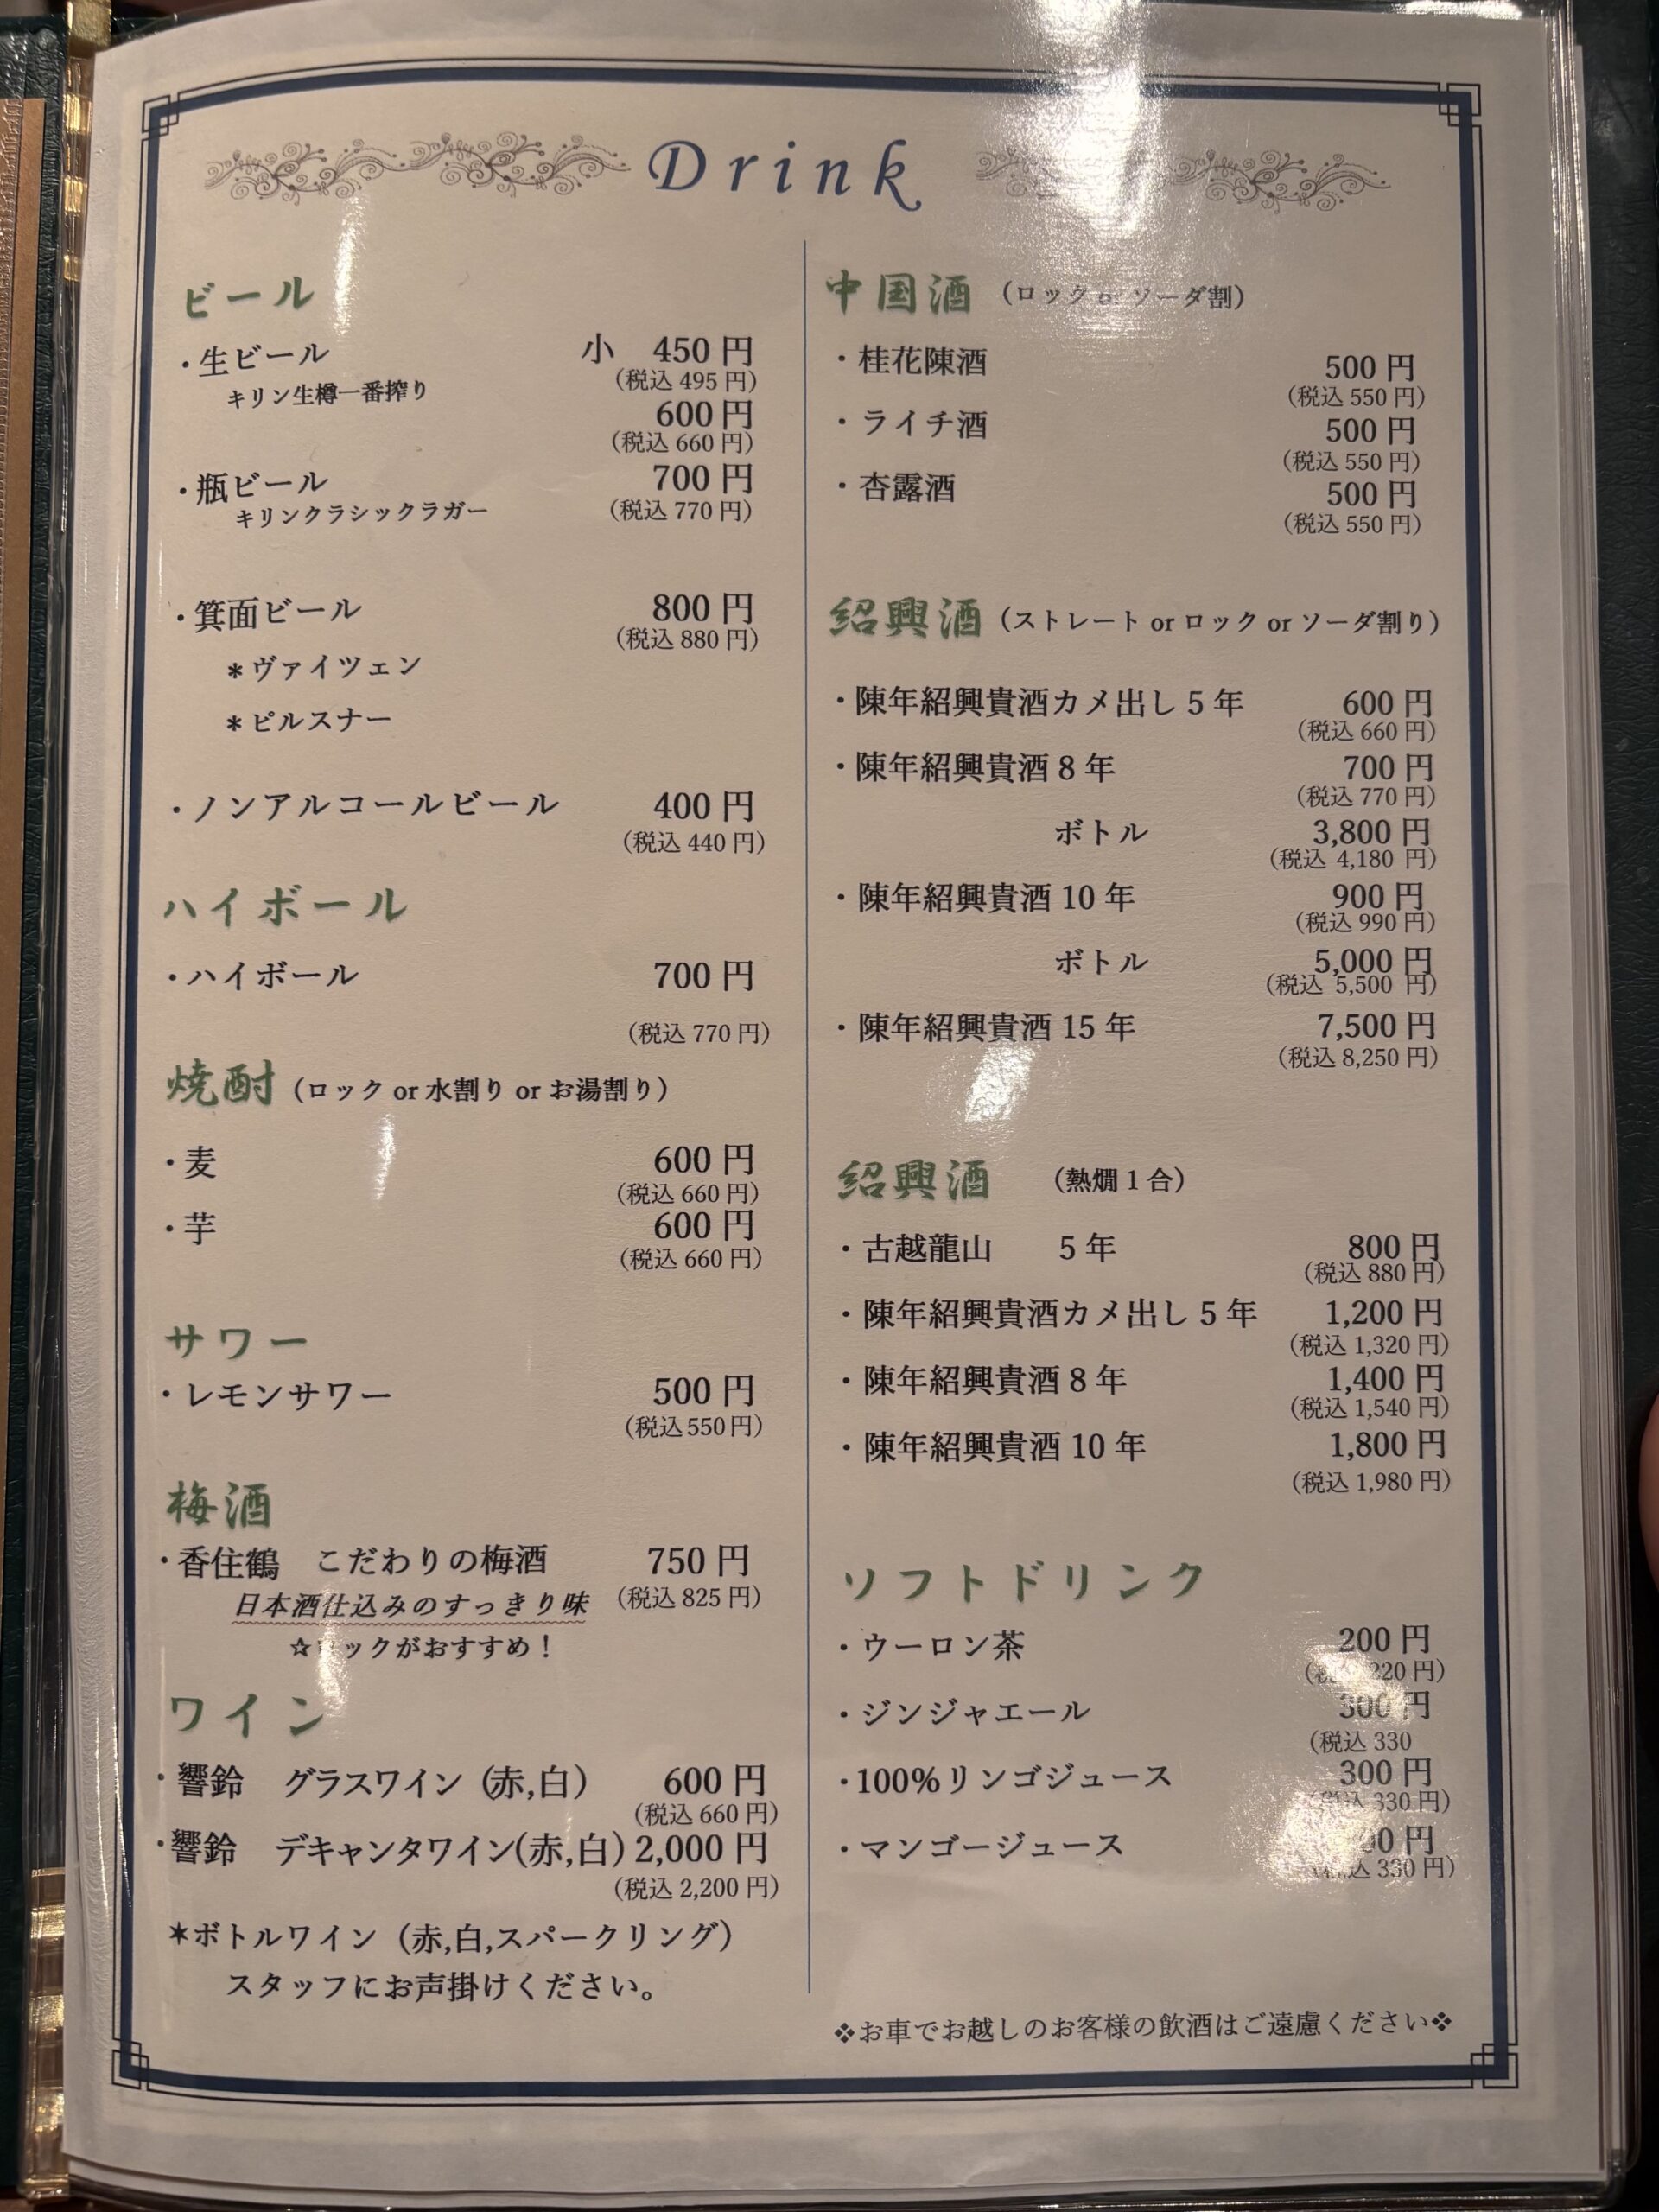 Drink
ビール
・生ビール 小 450 円
(税込 495 円)
キリン生樽一番搾り
600 円
(税込 660 円)
・瓶ビール 700 円
キリンクラシックラガー (税込 770 円)
・箕面ビール 800 円
(税込 880 円)
＊ヴァイツェン
＊ピルスナー
・ノンアルコールビール 400 円
(税込 440 円)
ハイボール
・ハイボール 700 円
(税込 770 円)
焼酎 (ロック or 水割り or お湯割り)
・麦 600 円
(税込 660 円)
・芋 600 円
(税込 660 円)
サワー
・レモンサワー 500 円
(税込 550 円)
梅酒
・香住鶴 こだわりの梅酒 750 円
日本酒仕込みのすっきり味 (税込 825 円)
☆ックがおすすめ！
ワイン
・響鈴 グラスワイン (赤,白) 600 円
(税込 660 円)
・響鈴 デキャンタワイン(赤,白) 2,000 円
(税込 2,200 円)
＊ボトルワイン (赤,白,スパークリング)
スタッフにお声掛けください。
中国酒 (ロック or ソーダ割)
・桂花陳酒 500 円
(税込 550 円)
・ライチ酒 500 円
(税込 550 円)
・杏露酒 500 円
(税込 550 円)
紹興酒 (ストレート or ロック or ソーダ割り)
・陳年紹興貴酒カメ出し 5 年 600 円
(税込 660 円)
・陳年紹興貴酒 8 年 700 円
(税込 770 円)
ボトル 3,800 円
(税込 4,180 円)
・陳年紹興貴酒 10 年 900 円
(税込 990 円)
ボトル 5,000 円
(税込 5,500 円)
・陳年紹興貴酒 15 年 7,500 円
(税込 8,250 円)
紹興酒 (熱燗 1 合)
・古越龍山 5 年 800 円
(税込 880 円)
・陳年紹興貴酒カメ出し 5 年 1,200 円
(税込 1,320 円)
・陳年紹興貴酒 8 年 1,400 円
(税込 1,540 円)
・陳年紹興貴酒 10 年 1,800 円
(税込 1,980 円)
ソフトドリンク
・ウーロン茶 200 円
220 円)
・ジンジャエール 300 円
(税込 330
・100%リンゴジュース 300 円
(税込 330 円)
・マンゴージュース 00 円
税込 330 円)
❖お車でお越しのお客様の飲酒はご遠慮ください❖